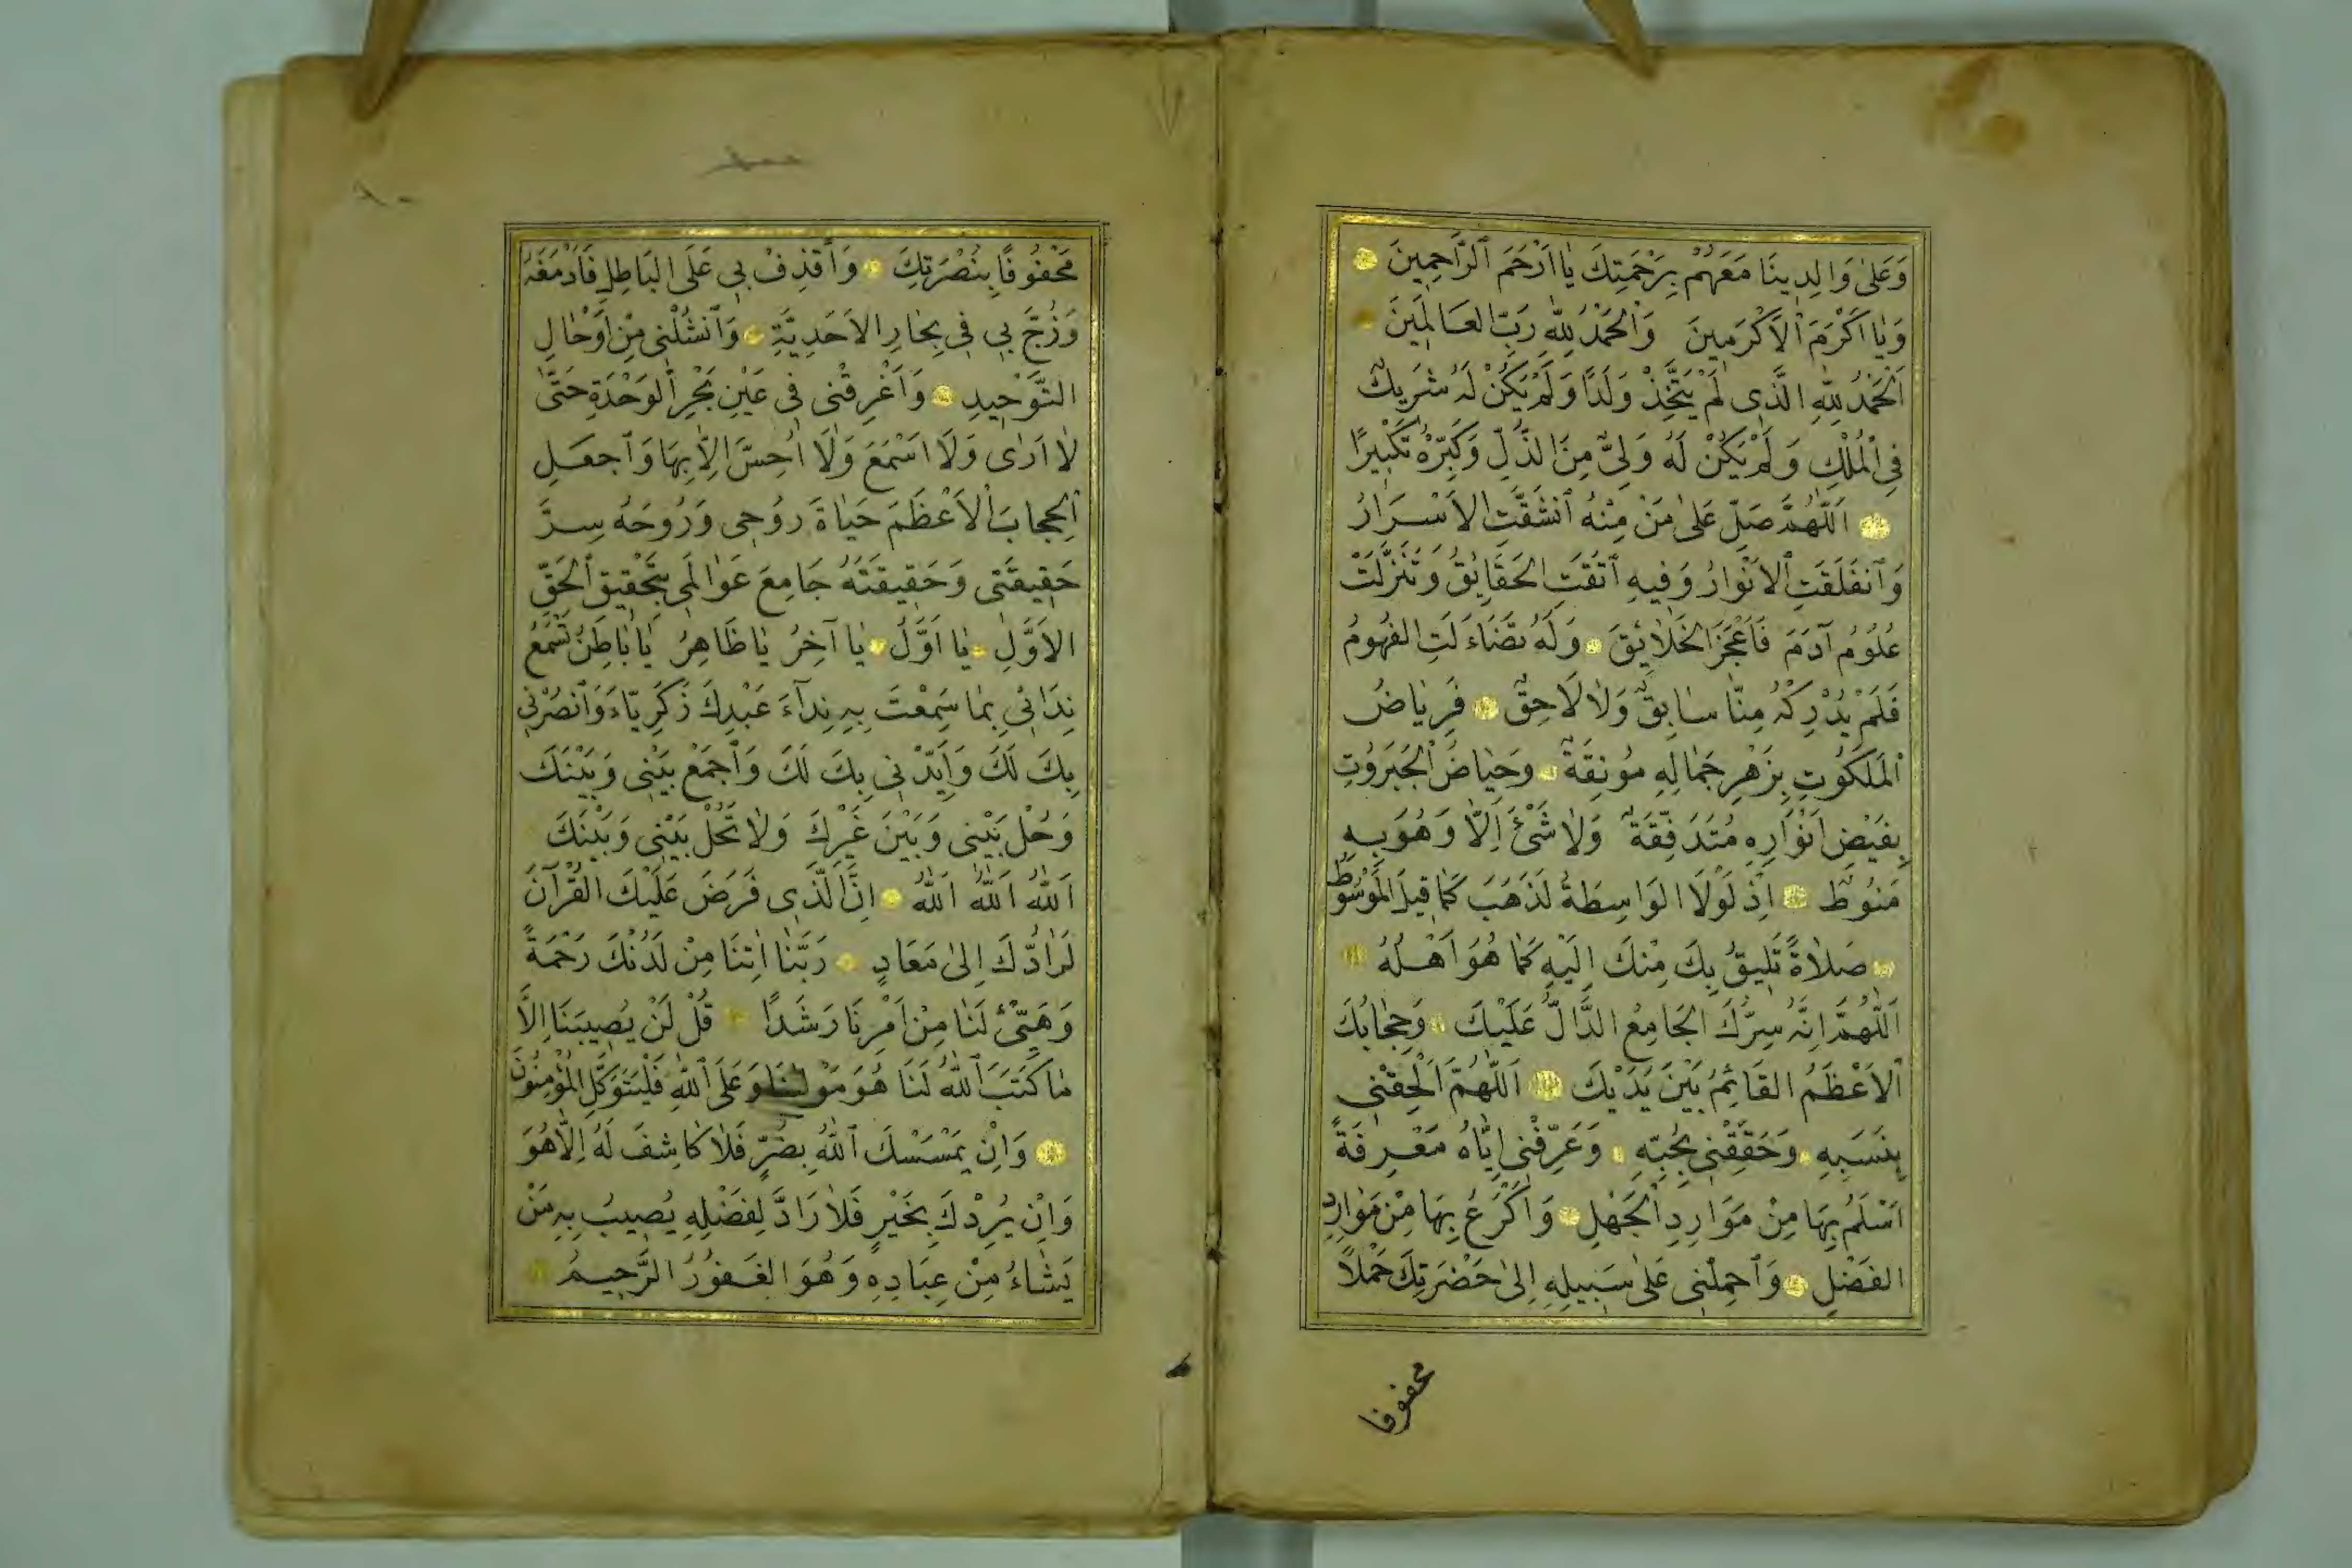 وَعَلٰى وَالِدِينَا مَعَهُمْ بِرَحْمَتِكَ يَا اَرْحَمَ ٱلرَّاحِمِينَ
وَيَا اَكْرَمَ ٱلْاَكْرَمِينَ وَٱلْحَمْدُ لِلّٰهِ رَبِّ العَالَمِينَ
اَلْحَمْدُ لِلّٰهِ الَّذِى لَمْ يَتَّخِذْ وَلَدًا وَلَمْ يَكُنْ لَهُ شَرِيكٌ
فِى ٱلْمُلْكِ وَلَمْ يَكُنْ لَهُ وَلِىٌّ مِنَ الذُّلِّ وَكَبِّرْهُ تَكْبِيرًا
اَللّٰهُمَّ صَلِّ عَلٰى مَنْ مِنْهُ ٱنْشَقَّتِ الاَسْرَارُ
وَٱنْفَلَقَتِ ٱلاَنْوَارُ وَفِيهِ ٱرْتَقَتِ الحَقَايِقُ وَتَنَزَّلَتْ
عُلُوُمُ آدَمَ فَاَعْجَزَ الخَلَايِقَ وَلَهُ تَضَاءَلَتِ الفُهُومُ
فَلَمْ يُدْرِكْهُ مِنَّا سَابِقٌ وَلَا لَاحِقٌ فَرِيَاضُ
ٱلمَلَكُوُتِ بِزَهْرِ جَمَالِهِ مُونِقَةٌ وَحِيَاضُ ٱلجَبَرُوُتِ
بِفَيْضِ اَنْوَارِهِ مُتَدَفِّقَةٌ وَلَا شَىْءَ اِلَّا وَهُوَ بِهِ
مَنُوُطٌ اِذْ لَوْلَا الوَاسِطَةُ لَذَهَبَ كَمَا قِيلَ المَوْسُوُطُ
صَلَاةً تَلِيقُ بِكَ مِنْكَ اِلَيْهِ كَمَا هُوَ اَهْلُهُ
اَللّٰهُمَّ اِنَّهُ سِرُّكَ الجَامِعُ الدَّالُّ عَلَيْكَ وَحِجَابُكَ
ٱلاَعْظَمُ القَائِمُ بَيْنَ يَدَيْكَ اَللّٰهُمَّ اَلْحِقْنِى
بِنَسَبِهِ وَحَقِّقْنِى بِحُبِّهِ وَعَرِّفْنِى اِيَّاهُ مَعْرِفَةً
اَسْلَمُ بِهَا مِنْ مَوَارِدِ ٱلجَهْلِ وَاَكْرَعُ بِهَا مِنْ مَوَارِدِ
الفَضْلِ وَٱحْمِلْنِى عَلٰى سَبِيلِهِ اِلٰى حَضْرَتِكَ حَمْلًا
محفوفا
مَحْفُوفًا بِنُصْرَتِكَ وَٱقْذِفْ بِى عَلَى البَاطِلِ فَاَدْمَغَهُ
وَزُجَّ بِى فِى بِحَارِ الاَحَدِيَّةِ وَٱنْشُلْنِى مِنْ اَوْحَالِ
التَّوْحِيدِ وَاَغْرِقْنِى فِى عَيْنِ بَحْرِ ٱلوَحْدَةِ حَتّٰى
لَا اَرٰى وَلَا اَسْمَعَ وَلَا اُحِسَّ اِلَّا بِهَا وَٱجْعَلِ
ٱلحِجَابَ ٱلاَعْظَمَ حَيَاةَ رُوُحِى وَرُوُحَهُ سِرَّ
حَقِيقَتِى وَحَقِيقَتَهُ جَامِعَ عَوَالِمِى بِتَحْقِيقِ ٱلحَقِّ
الاَوَّلِ يَا اَوَّلُ يَا آخِرُ يَا ظَاهِرُ يَا بَاطِنُ تَسْمَعُ
نِدَائِى بِمَا سَمِعْتَ بِهِ نِدَآءَ عَبْدِكَ زَكَرِيَّاءَ وَٱنْصُرْنِى
بِكَ لَكَ وَاَيِّدْنِى بِكَ لَكَ وَٱجْمَعْ بَيْنِى وَبَيْنَكَ
وَحُلْ بَيْنِى وَبَيْنَ غَيْرِكَ وَلَا تَحُلْ بَيْنِى وَبَيْنَكَ
اَللّٰهُ اَللّٰهُ اَللّٰهُ اِنَّ الَّذِى فَرَضَ عَلَيْكَ القُرْآنَ
لَرَادُّكَ اِلٰى مَعَادٍ رَبَّنَا اٰتِنَا مِنْ لَدُنْكَ رَحْمَةً
وَهَيِّئْ لَنَا مِنْ اَمْرِنَا رَشَدًا قُلْ لَنْ يُصِيبَنَا اِلَّا
مَا كَتَبَ ٱللّٰهُ لَنَا هُوَ مَوْلٰينَا وَعَلَى ٱللّٰهِ فَلْيَتَوَكَّلِ المُؤْمِنُونَ
وَاِنْ يَمْسَسْكَ ٱللّٰهُ بِضُرٍّ فَلَا كَاشِفَ لَهُ اِلَّا هُوَ
وَاِنْ يُرِدْكَ بِخَيْرٍ فَلَا رَادَّ لِفَضْلِهِ يُصِيبُ بِهِ مَنْ
يَشَاءُ مِنْ عِبَادِهِ وَهُوَ الغَفُوُرُ الرَّحِيمُ